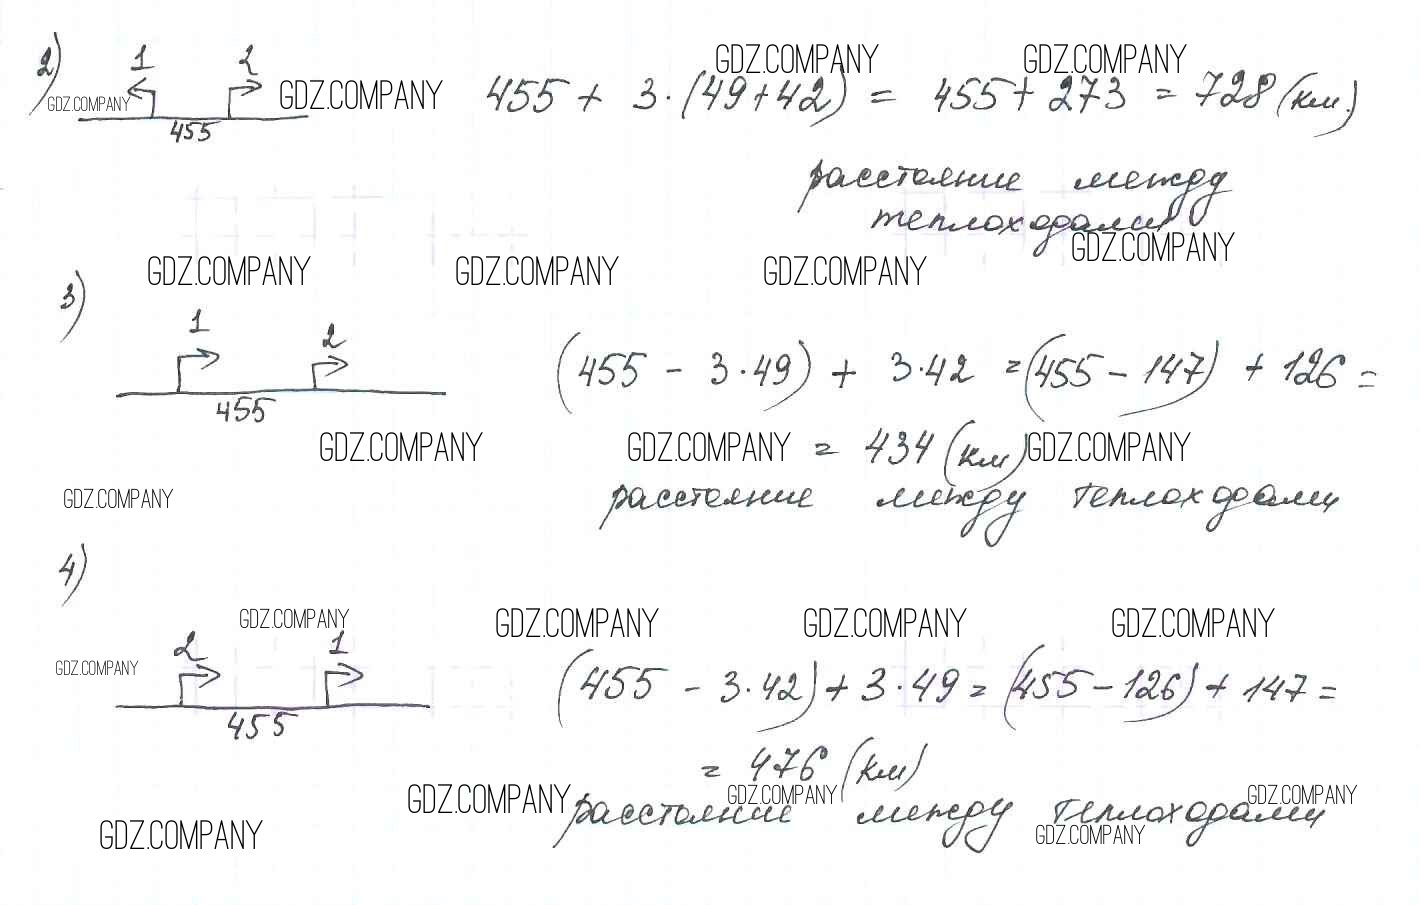 2) 1 2 GDZ.COMPANY GDZ.COMPANY
GDZ.COMPANY GDZ.COMPANY 455 + 3·(49+42) = 455+273 = 728 (км)
455
расстояние между
теплоходами
GDZ.COMPANY
GDZ.COMPANY GDZ.COMPANY GDZ.COMPANY
3) 1 2
(455 - 3·49) + 3·42 = (455-147) + 126 =
455
GDZ.COMPANY GDZ.COMPANY = 434 (км) GDZ.COMPANY
GDZ.COMPANY расстояние между теплоходами
4)
GDZ.COMPANY GDZ.COMPANY GDZ.COMPANY GDZ.COMPANY
2 1
GDZ.COMPANY (455 - 3·42) + 3·49 = (455-126) + 147 =
455
= 476 (км)
GDZ.COMPANY GDZ.COMPANY GDZ.COMPANY
расстояние между теплоходами
GDZ.COMPANY GDZ.COMPANY